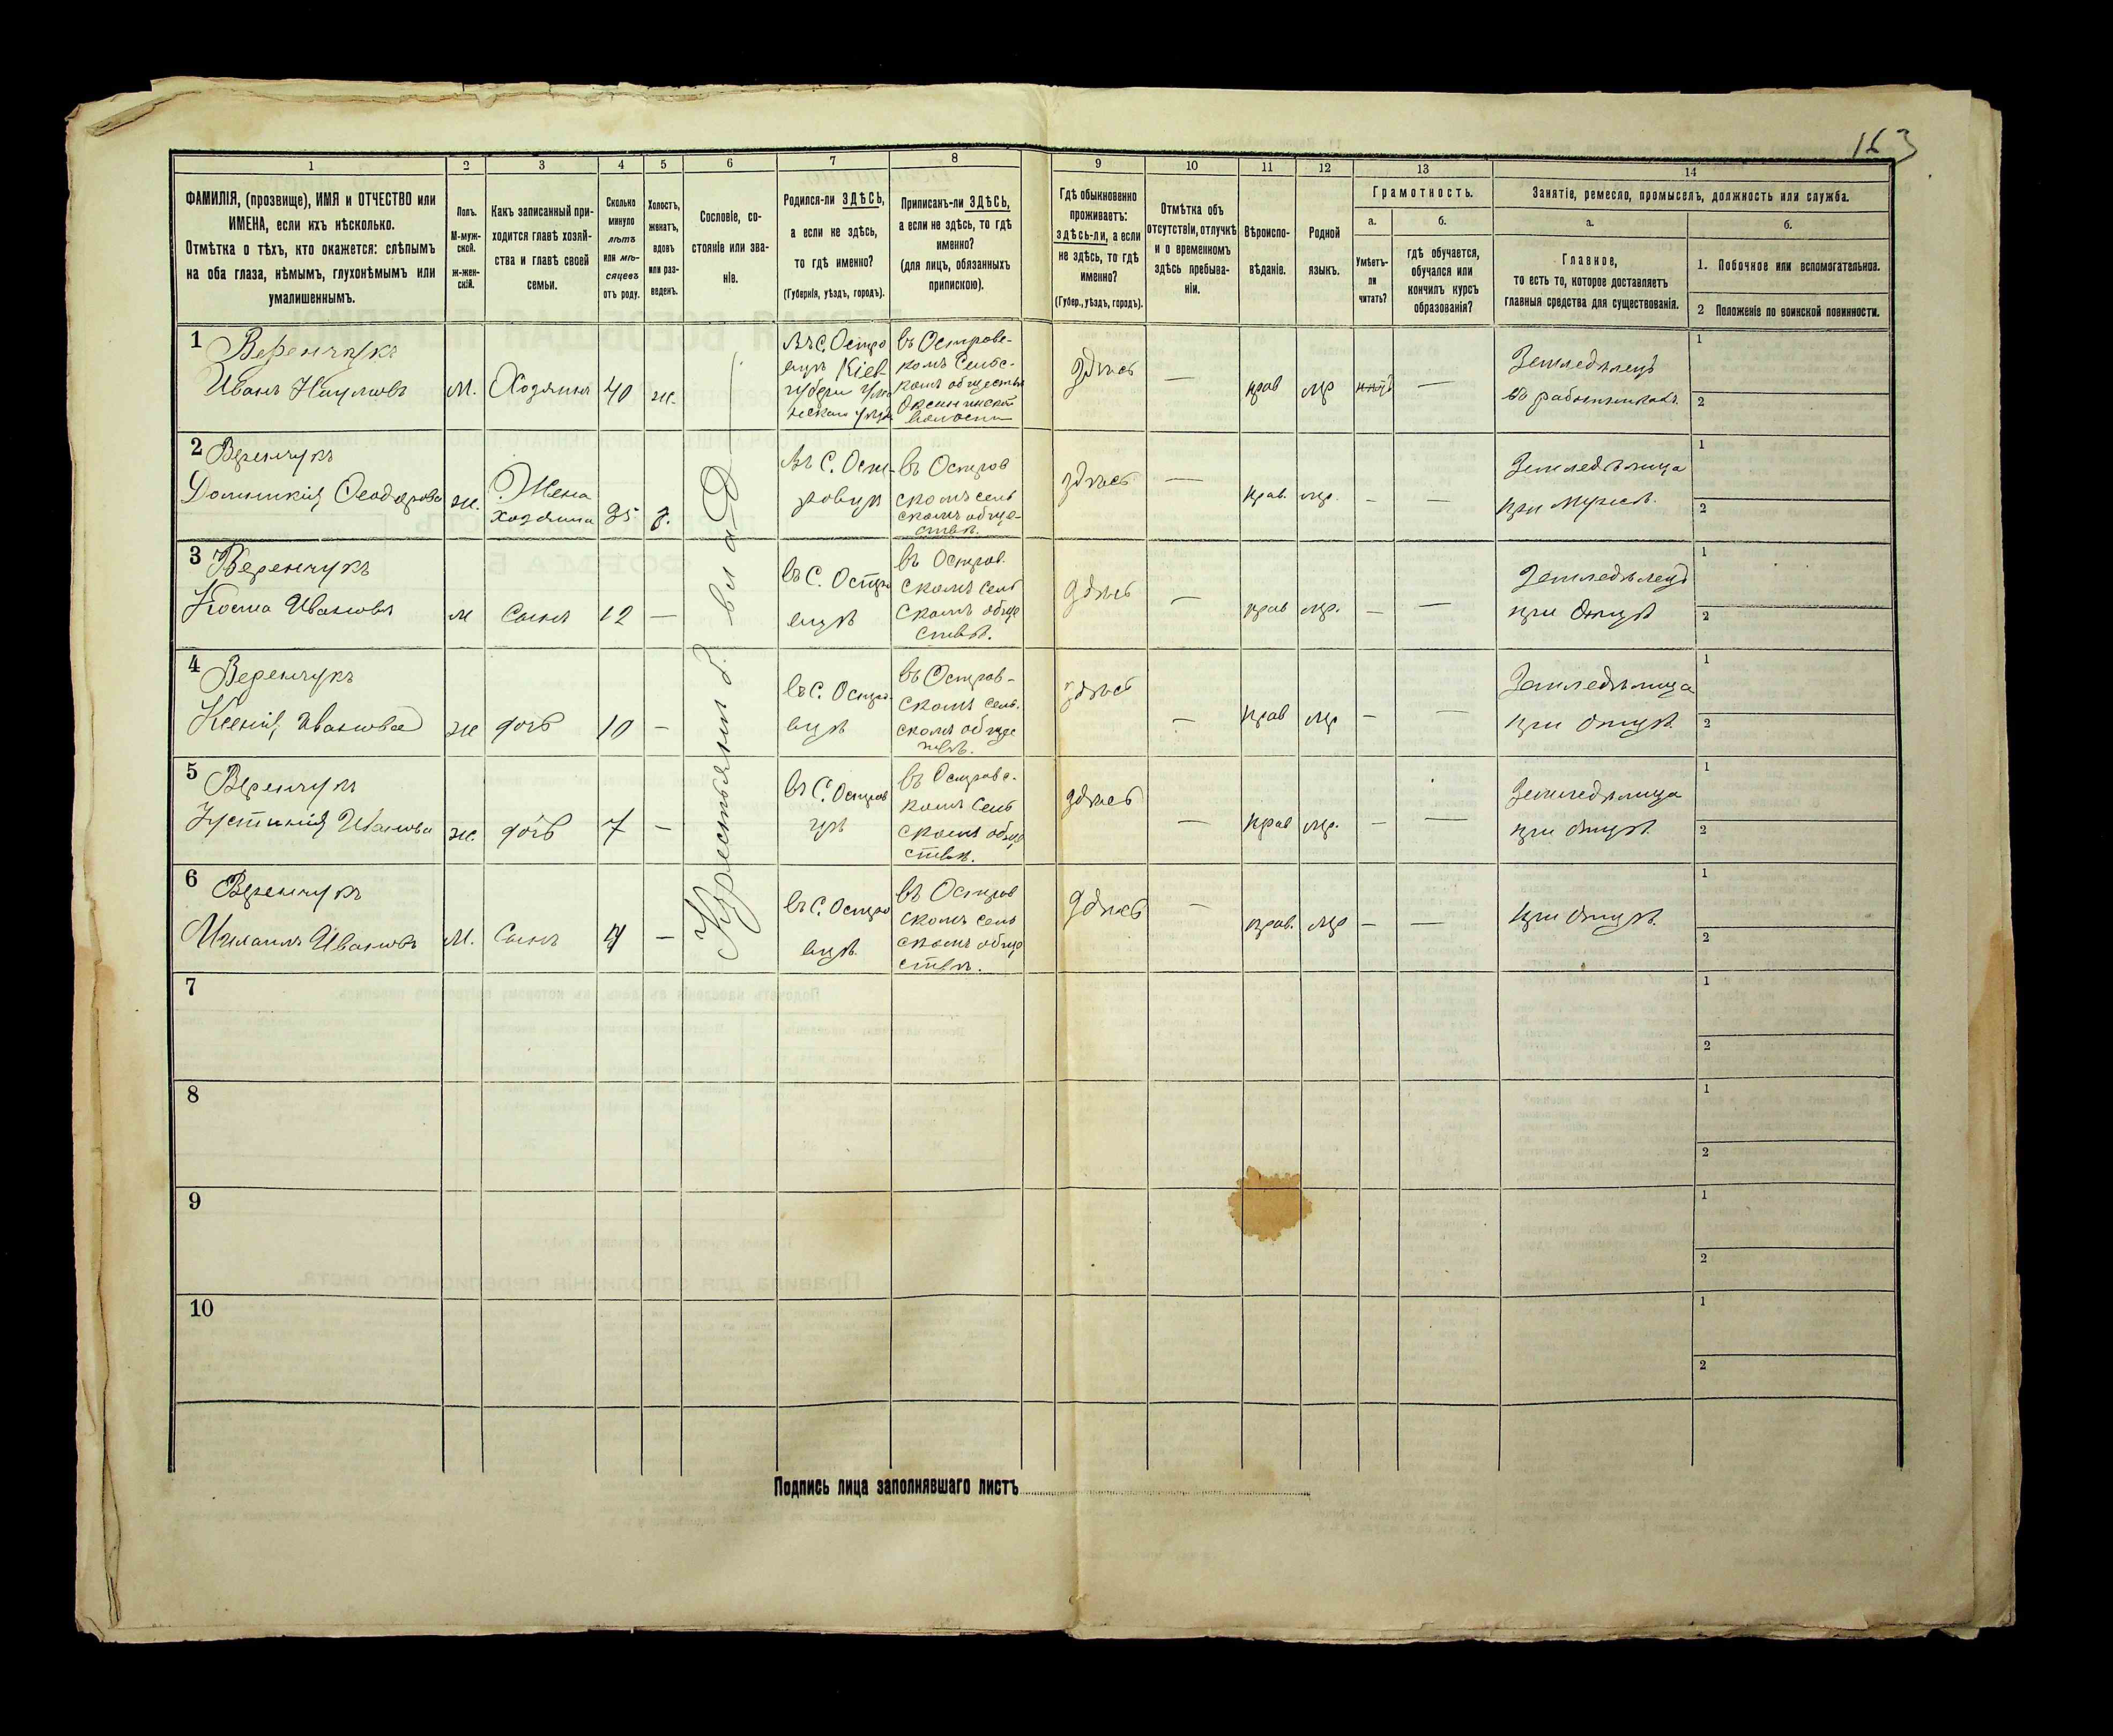 163
1 2 3 4 5 6 7 8 9 10 11 12 13 14
ФАМИЛІЯ, (прозвище), ИМЯ и ОТЧЕСТВО или
ИМЕНА, если ихъ нѣсколько.
Отмѣтка о тѣхъ, кто окажется: слѣпымъ
на оба глаза, нѣмымъ, глухонѣмымъ или
умалишеннымъ.
Полъ.
М-муж-
ской.
ж-жен-
скій.
Какъ записанный при-
ходится главѣ хозяй-
ства и главѣ своей
семьи.
Сколько
минуло
лѣтъ
или мѣ-
сяцевъ
отъ роду.
Холостъ,
женатъ,
вдовъ
или раз-
веденъ.
Сословіе, со-
стояніе или зва-
ніе.
Родился-ли ЗДѢСЬ,
а если не здѣсь,
то гдѣ именно?
(Губернія, уѣздъ, городъ).
Приписанъ-ли ЗДѢСЬ,
а если не здѣсь, то гдѣ
именно?
(для лицъ, обязанныхъ
припискою).
Гдѣ обыкновенно
проживаетъ:
здѣсь-ли, а если
не здѣсь, то гдѣ
именно?
(Губер., уѣздъ, городъ).
Отмѣтка объ
отсутствіи, отлучкѣ
и о временномъ
здѣсь пребыва-
ніи.
Вѣроиспо-
вѣданіе.
Родной
языкъ.
Грамотность.
а.
Умѣетъ-
ли
читать?
б.
гдѣ обучается,
обучался или
кончилъ курсъ
образованія?
Занятіе, ремесло, промыселъ, должность или служба.
а.
Главное,
то есть то, которое доставляетъ
главныя средства для существованія.
б.
1. Побочное или вспомогательное.
2 Положеніе по воинской повинности.
Крестьянин б. влад
1 Веренчукъ
Иванъ Наумовъ
М.
Хозяинъ
40
ж.
въ С. Остро
вцѣ Кіев
губерн
въ Островс-
комъ Сельс-
комъ обществѣ
волости
здѣсь
—
прав
мр
—
Земледѣлецъ
1
2
2 Веренчукъ
Домникія Феодорова
ж.
Жена
хозяина
35
з.
въ С. Ост-
ровцѣ
въ Остров
скомъ сель
скомъ обще-
ствѣ.
здѣсь
—
прав.
мр.
—
—
Земледѣлица
при мужѣ.
1
2
3 Веренчукъ
Косма Ивановъ
м
Сынъ
12
—
въ С. Остро
вцѣ
въ Остров.
скомъ сель
скомъ обще
ствѣ.
здѣсь
—
прав
мр.
—
—
Земледѣлецъ
при отцѣ
1
2
4 Веренчукъ
Ксенія Иванова
ж
дочь
10
—
въ С. Остро-
вцѣ
въ Остров-
скомъ сель.
скомъ обще
ствѣ.
здѣсь
—
прав
мр
—
—
Земледѣлица
при отцѣ.
1
2
5 Веренчукъ
Іустинія Иванова
ж.
дочь
7
—
въ С. Остров
цѣ
въ Островс-
комъ сель
скомъ обще
ствѣ.
здѣсь
—
прав
мр.
—
—
Земледѣлица
при отцѣ.
1
2
6 Веренчукъ
Михаилъ Ивановъ
М.
Сынъ
4
—
въ С. Остро
вцѣ.
въ Остров
скомъ сель
скомъ обще
ствѣ.
здѣсь
—
прав.
мр
—
—
при отцѣ.
1
2
7
1
2
8
1
2
9
1
2
10
1
2
Подпись лица заполнявшаго листъ